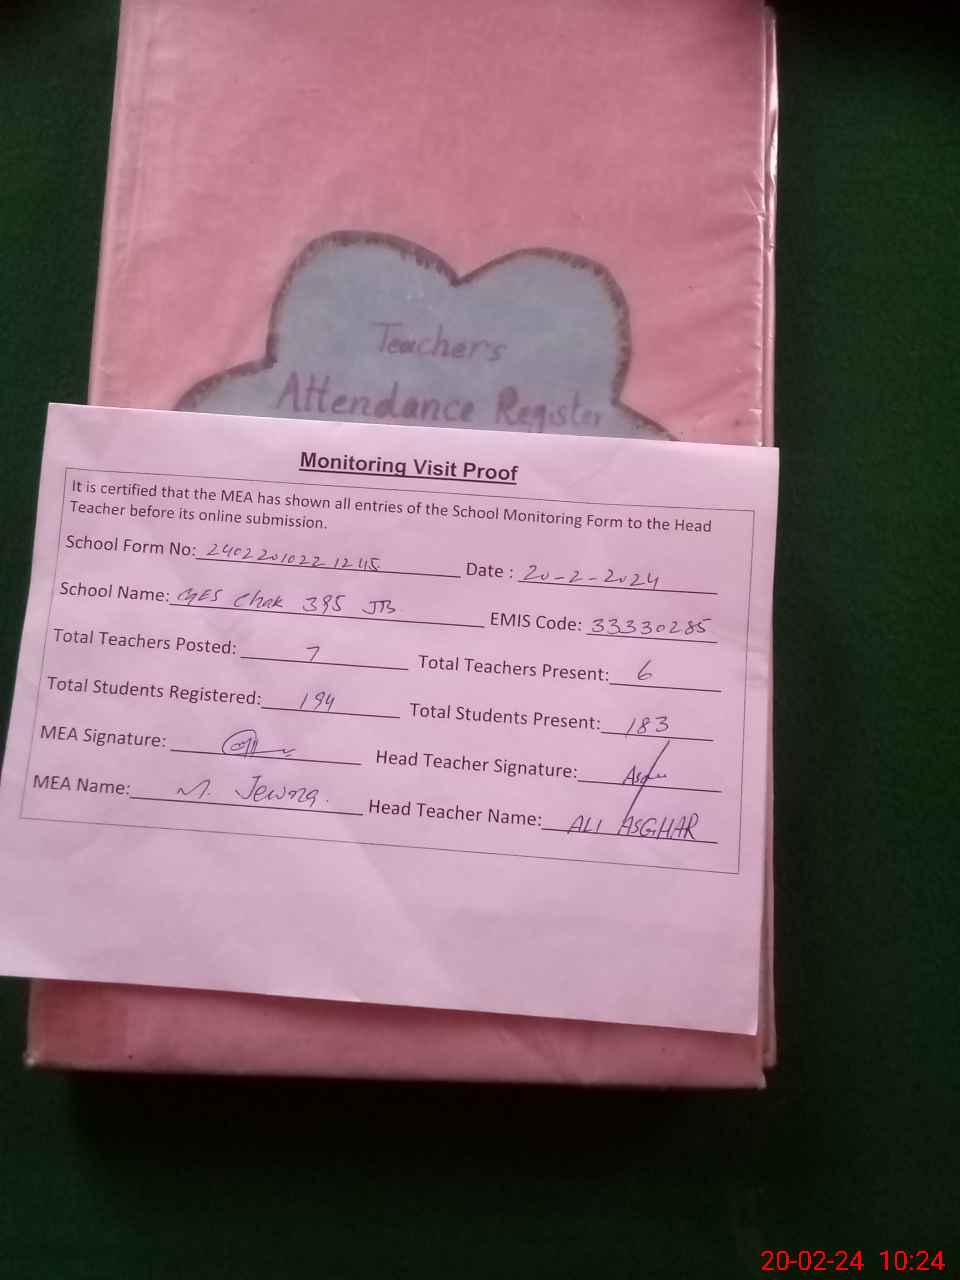 Teacher's
Attendance Register
Monitoring Visit Proof
It is certified that the MEA has shown all entries of the School Monitoring Form to the Head
Teacher before its online submission.
School Form No: 2402201022 1245 Date : 20-2-2024
School Name: GES Chak 395 JB EMIS Code: 33330285
Total Teachers Posted: 7 Total Teachers Present: 6
Total Students Registered: 194 Total Students Present: 183
MEA Signature: Head Teacher Signature:
MEA Name: M. Head Teacher Name: ALI ASGHAR
20-02-24 10:24